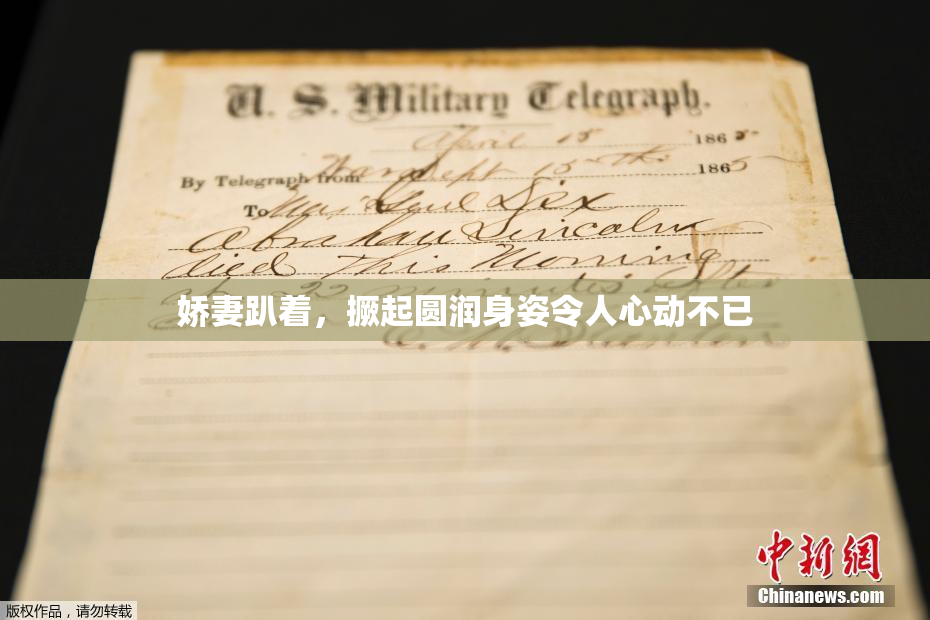 U. S. Military Telegraph.
April 15 1865
By Telegraph from War Dept 15th 1865
To Maj Genl Dix
Abraham Lincoln
died This Morning
at 22 minutes after
娇妻趴着，撅起圆润身姿令人心动不已
E. M. Stanton
中新网
Chinanews.com
版权作品，请勿转载